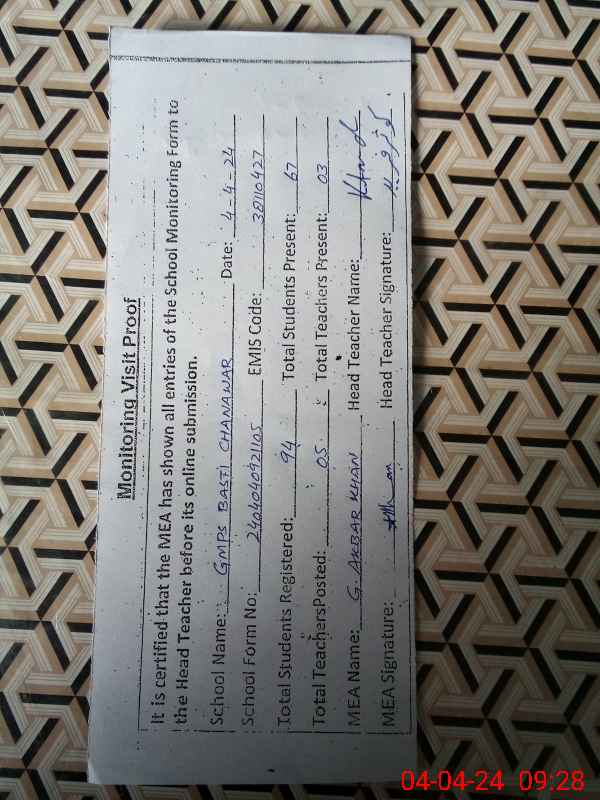 Monitoring Visit Proof
It is certified that the MEA has shown all entries of the School Monitoring Form to
the Head Teacher before its online submission.
School Name: GMPS BASTI CHANAWAR Date: 4-4-24
School Form No: 2404040921105 EMIS Code: 38110427
Total Students Registered: 94 Total Students Present: 67
Total TeachersPosted: 05 Total Teachers Present: 03
MEA Name: G. AKBAR KHAN Head Teacher Name:
MEA Signature: Head Teacher Signature:
04-04-24 09:28